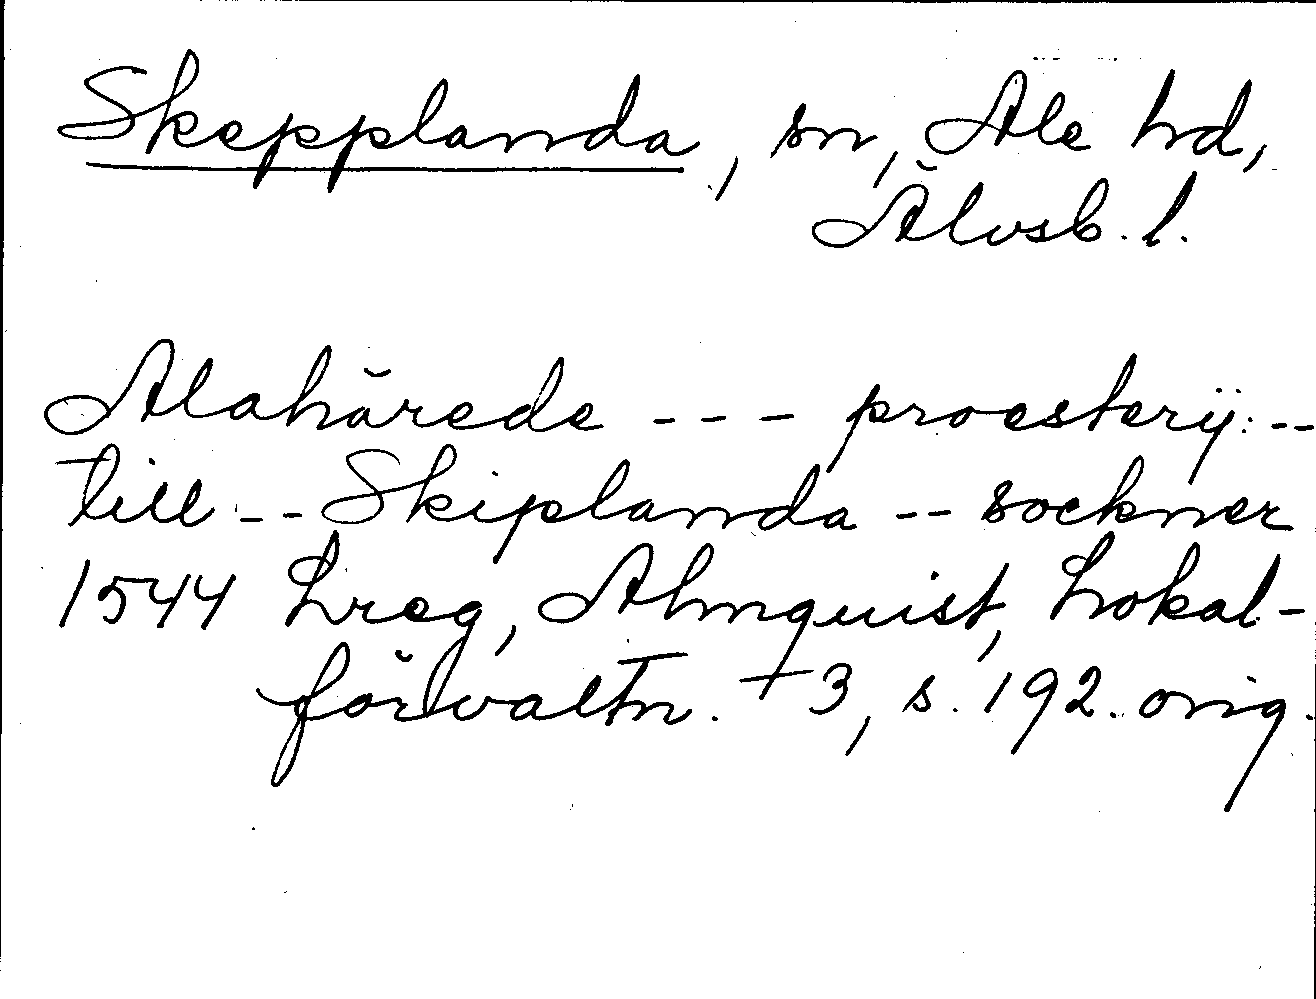 Skepplanda, sn, Ale hd,
Älvsb. l.
Alahärede --- proesterij: --
till -- Skiplanda -- sockner
1544 Lreg, Almquist, Lokal-
förvaltn. + 3, s. 192. orig.